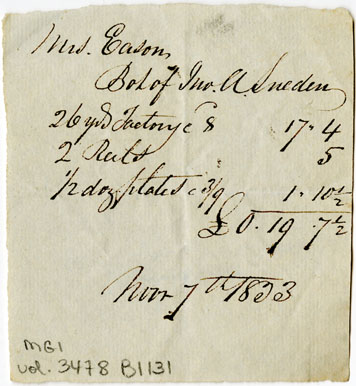 Mrs. Eason,
Bot of Jno. A. Sneden
26 yds Factory @ 8 17 - 4
2 Reels 5
1/2 doz plates @ 3/9 1 - 10 1/2
£0. 19 . 7 1/2
Novr 7th 1833
MG1
vol. 3478 B1131